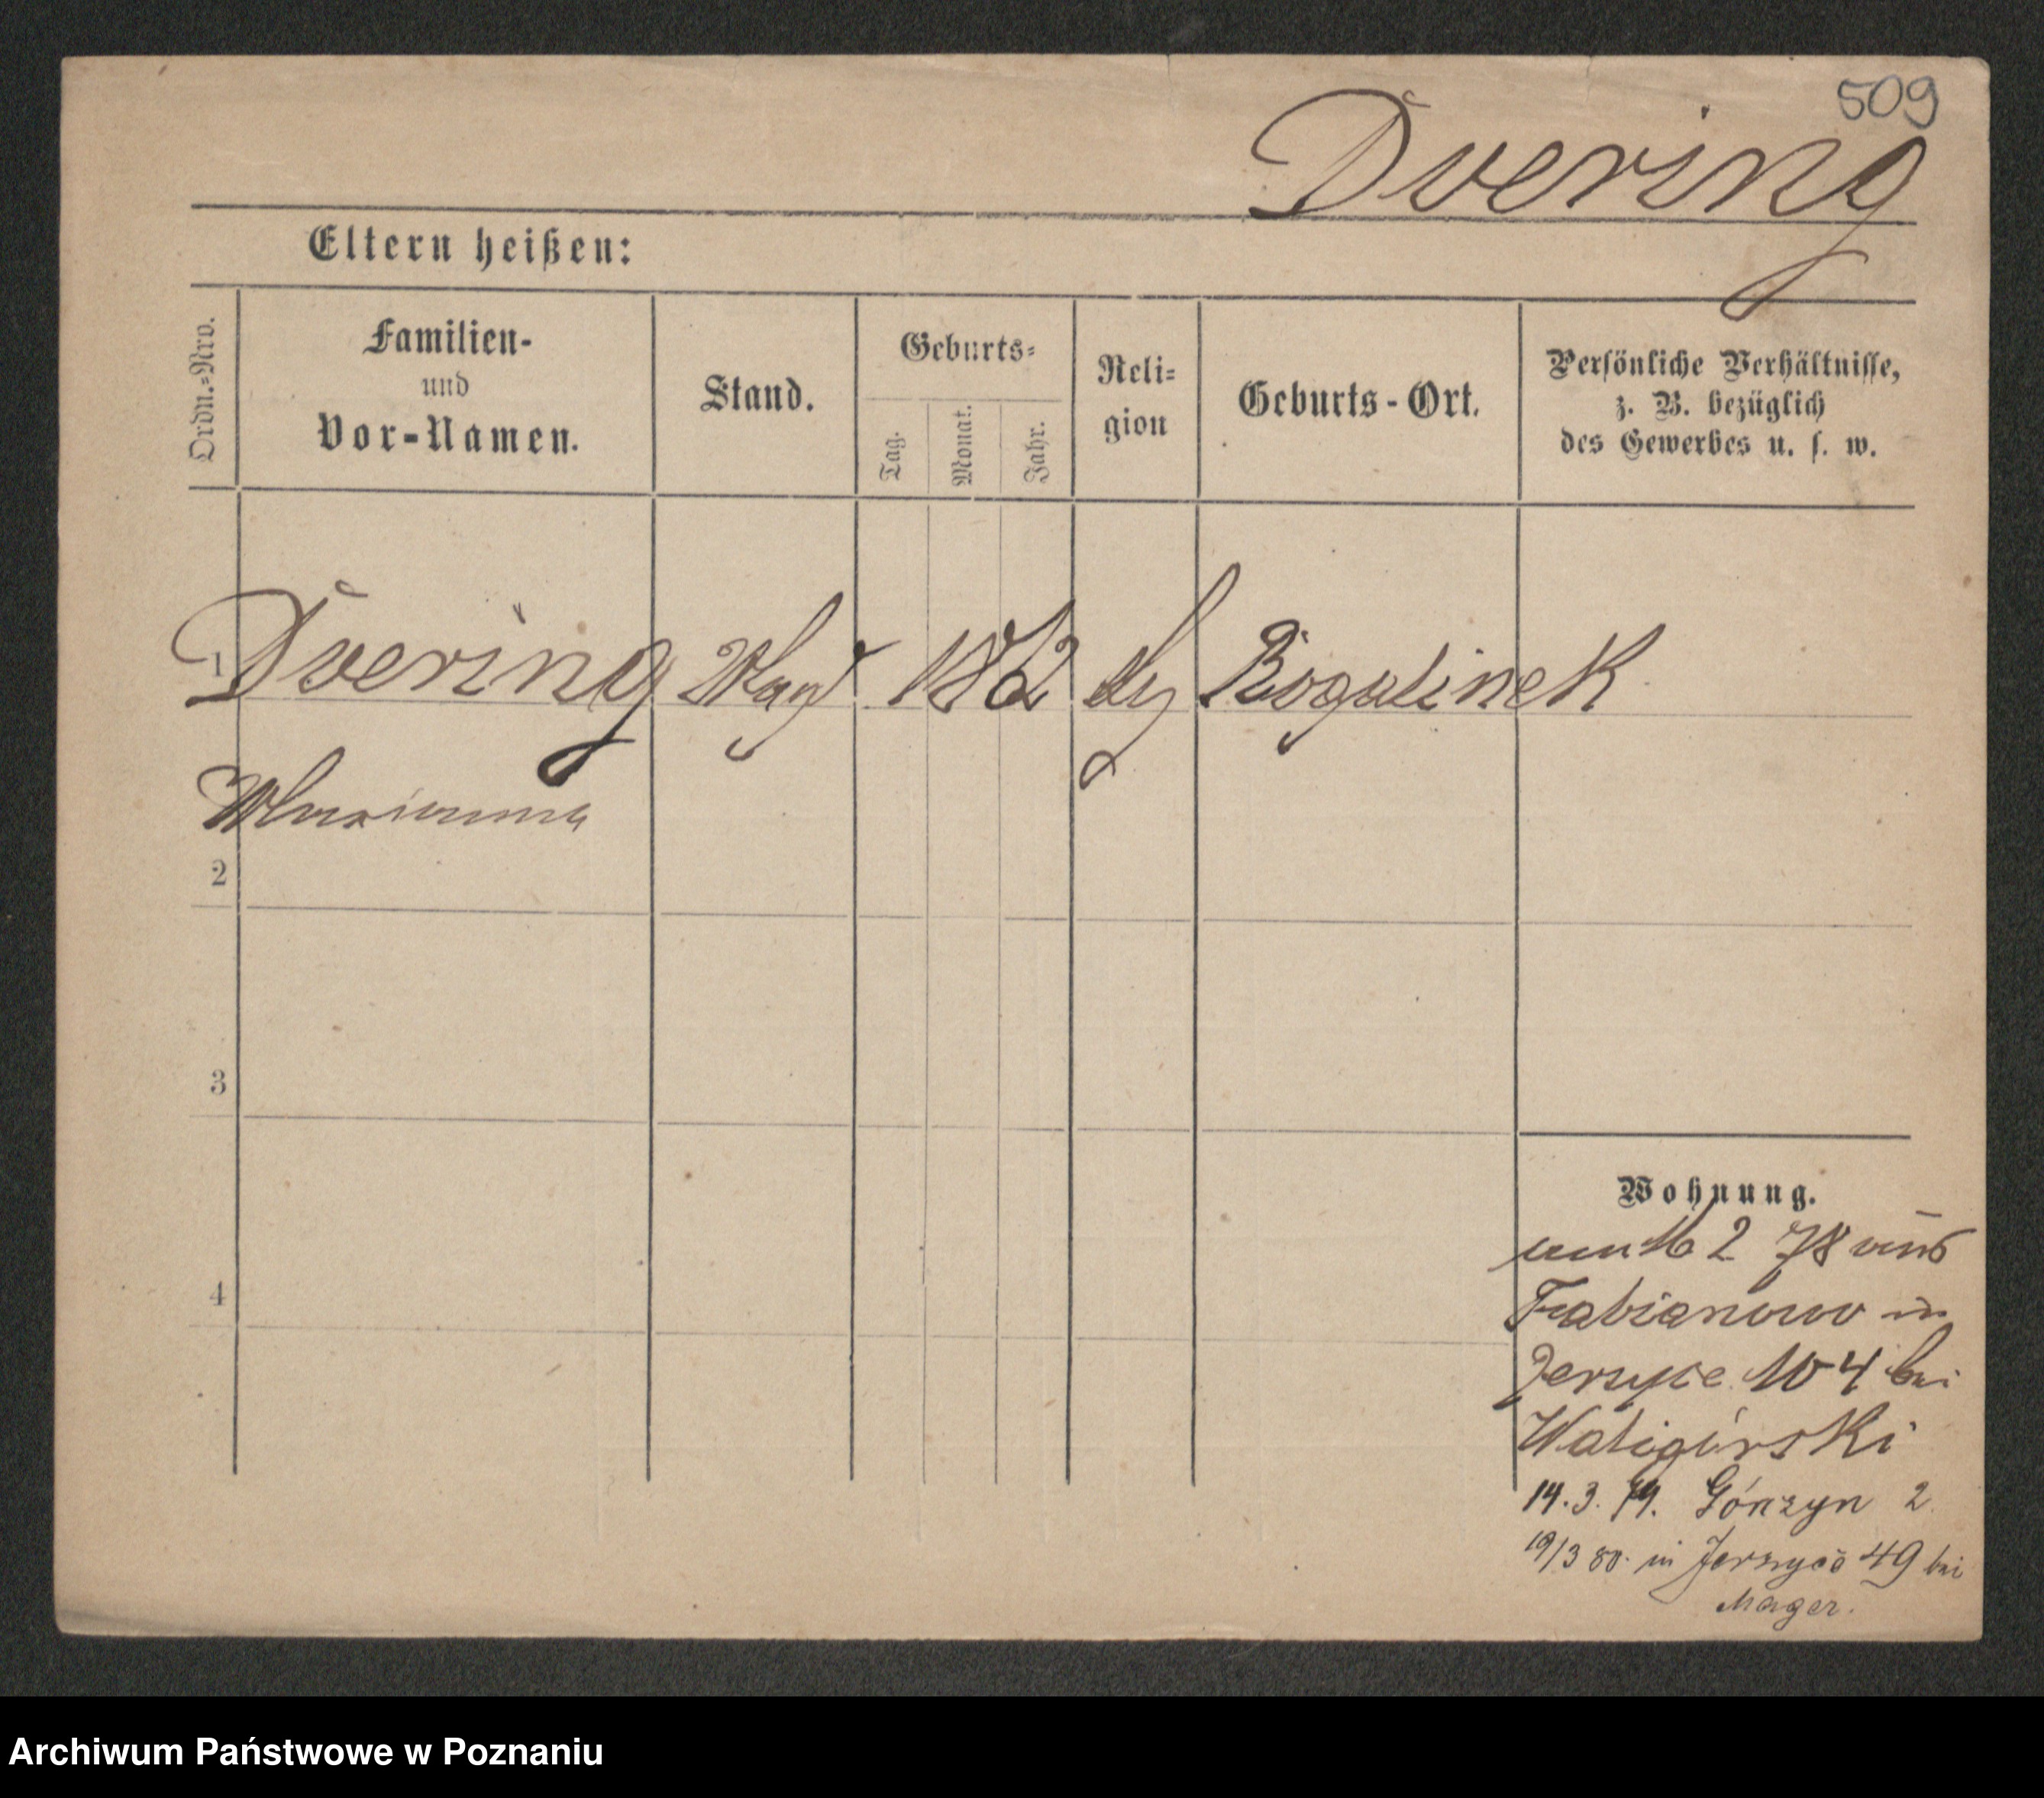 509
Doering
Eltern heißen:
Ordn.=Nro.
Familien-
und
Vor-Namen.
Stand.
Geburts=
Tag.
Monat.
Jahr.
Reli=
gion
Geburts-Ort.
Persönliche Verhältnisse,
z. B. bezüglich
des Gewerbes u. s. w.
1 Doering Magd 1862 Rogalinek
Marianna
2
3
4
Wohnung.
16 2 78 aus
Fabianowo in
Jersyce 104 bei
Waligórski
14.3.79. Górczyn 2
19/3 80. in Jerzyce 49 bei
Mager.
Archiwum Państwowe w Poznaniu